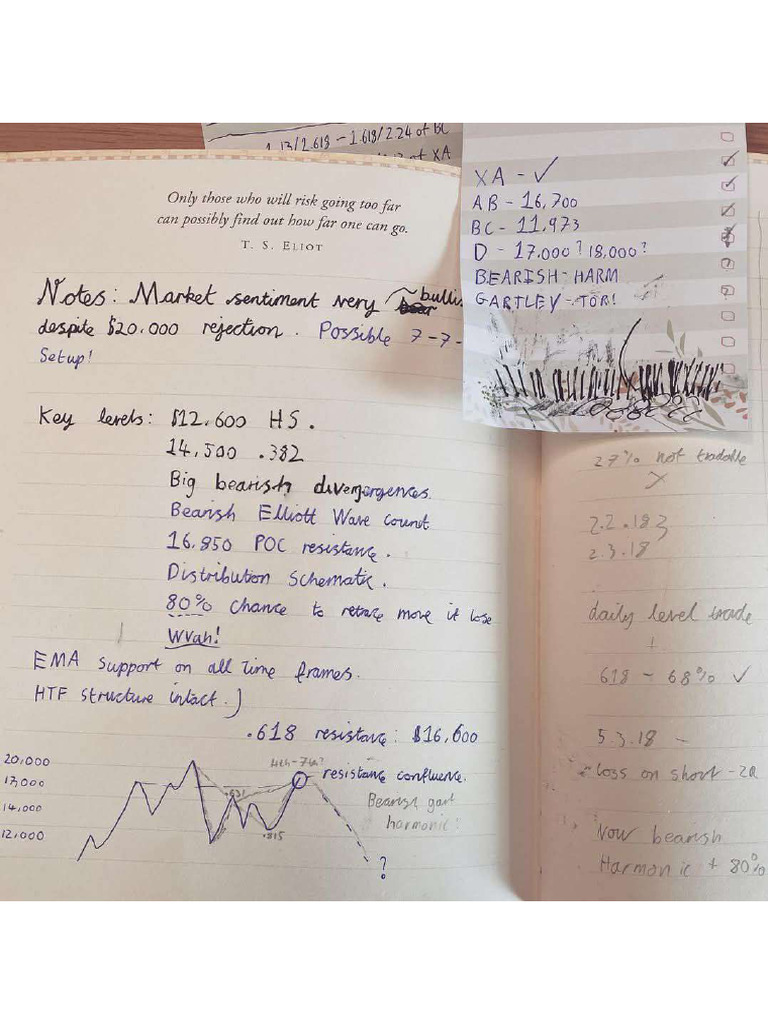 1.13/2.618 - 1.618/2.24 of BC
of XA
Only those who will risk going too far
can possibly find out how far one can go.
T. S. ELIOT
Notes: Market sentiment very bullis
despite $20.000 rejection. Possible 7-7-
Setup!
Key levels: $12.600 HS.
14,500 .382
Big bearish divergences.
Bearish Elliott Wave count
16.850 POC resistance.
Distribution schematic.
80% chance to retrace move if lose
EMA support on all time frames.
HTF structure intact.
.618 resistance: $16,600
20,000
17,000
14,000
12,000
.815
resistance confluence.
Bearish gart
harmonic!
?
XA - ✓
AB - 16,700
BC - 11,973
D - 17.000? 18,000?
BEARISH - HARM
GARTLEY - TOR!
27% not tradable
2.2.18
2.3.18
daily level trade
+
618 - 68% ✓
5.3.18 -
loss on short - 2R
Now bearish
Harmonic + 80%